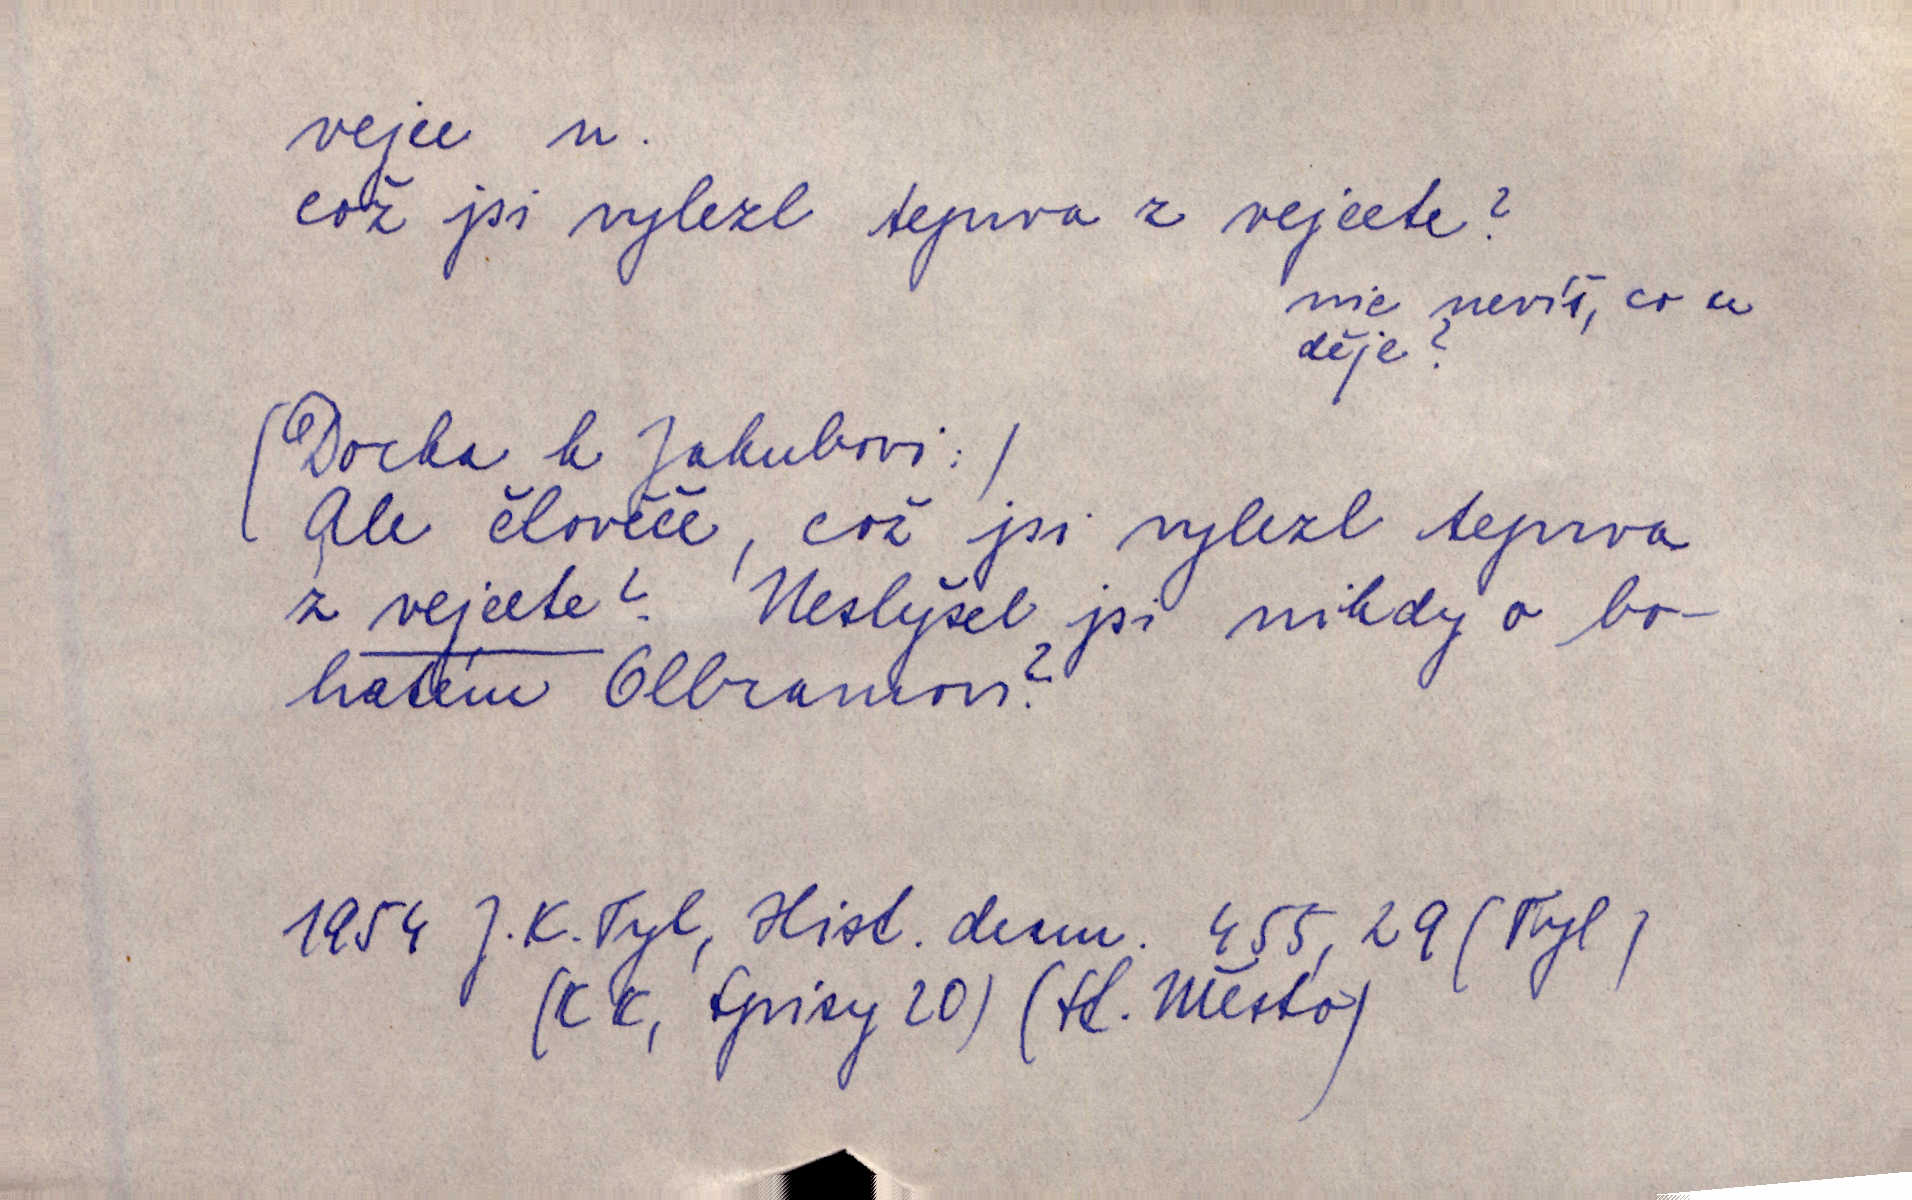 vejce n.
což jsi vylezl teprva z vejcete?
nic nevíš, co se
děje?
(Docka k Jakubovi:)
Ale člověče, což jsi vylezl teprva
z vejcete? Neslyšel jsi nikdy o bo-
hatém Olbramovi?
1954 J.K.Tyl, Hist. dram. 455, 29 (Tyl)
(KK, Spisy 20) (St. Město)